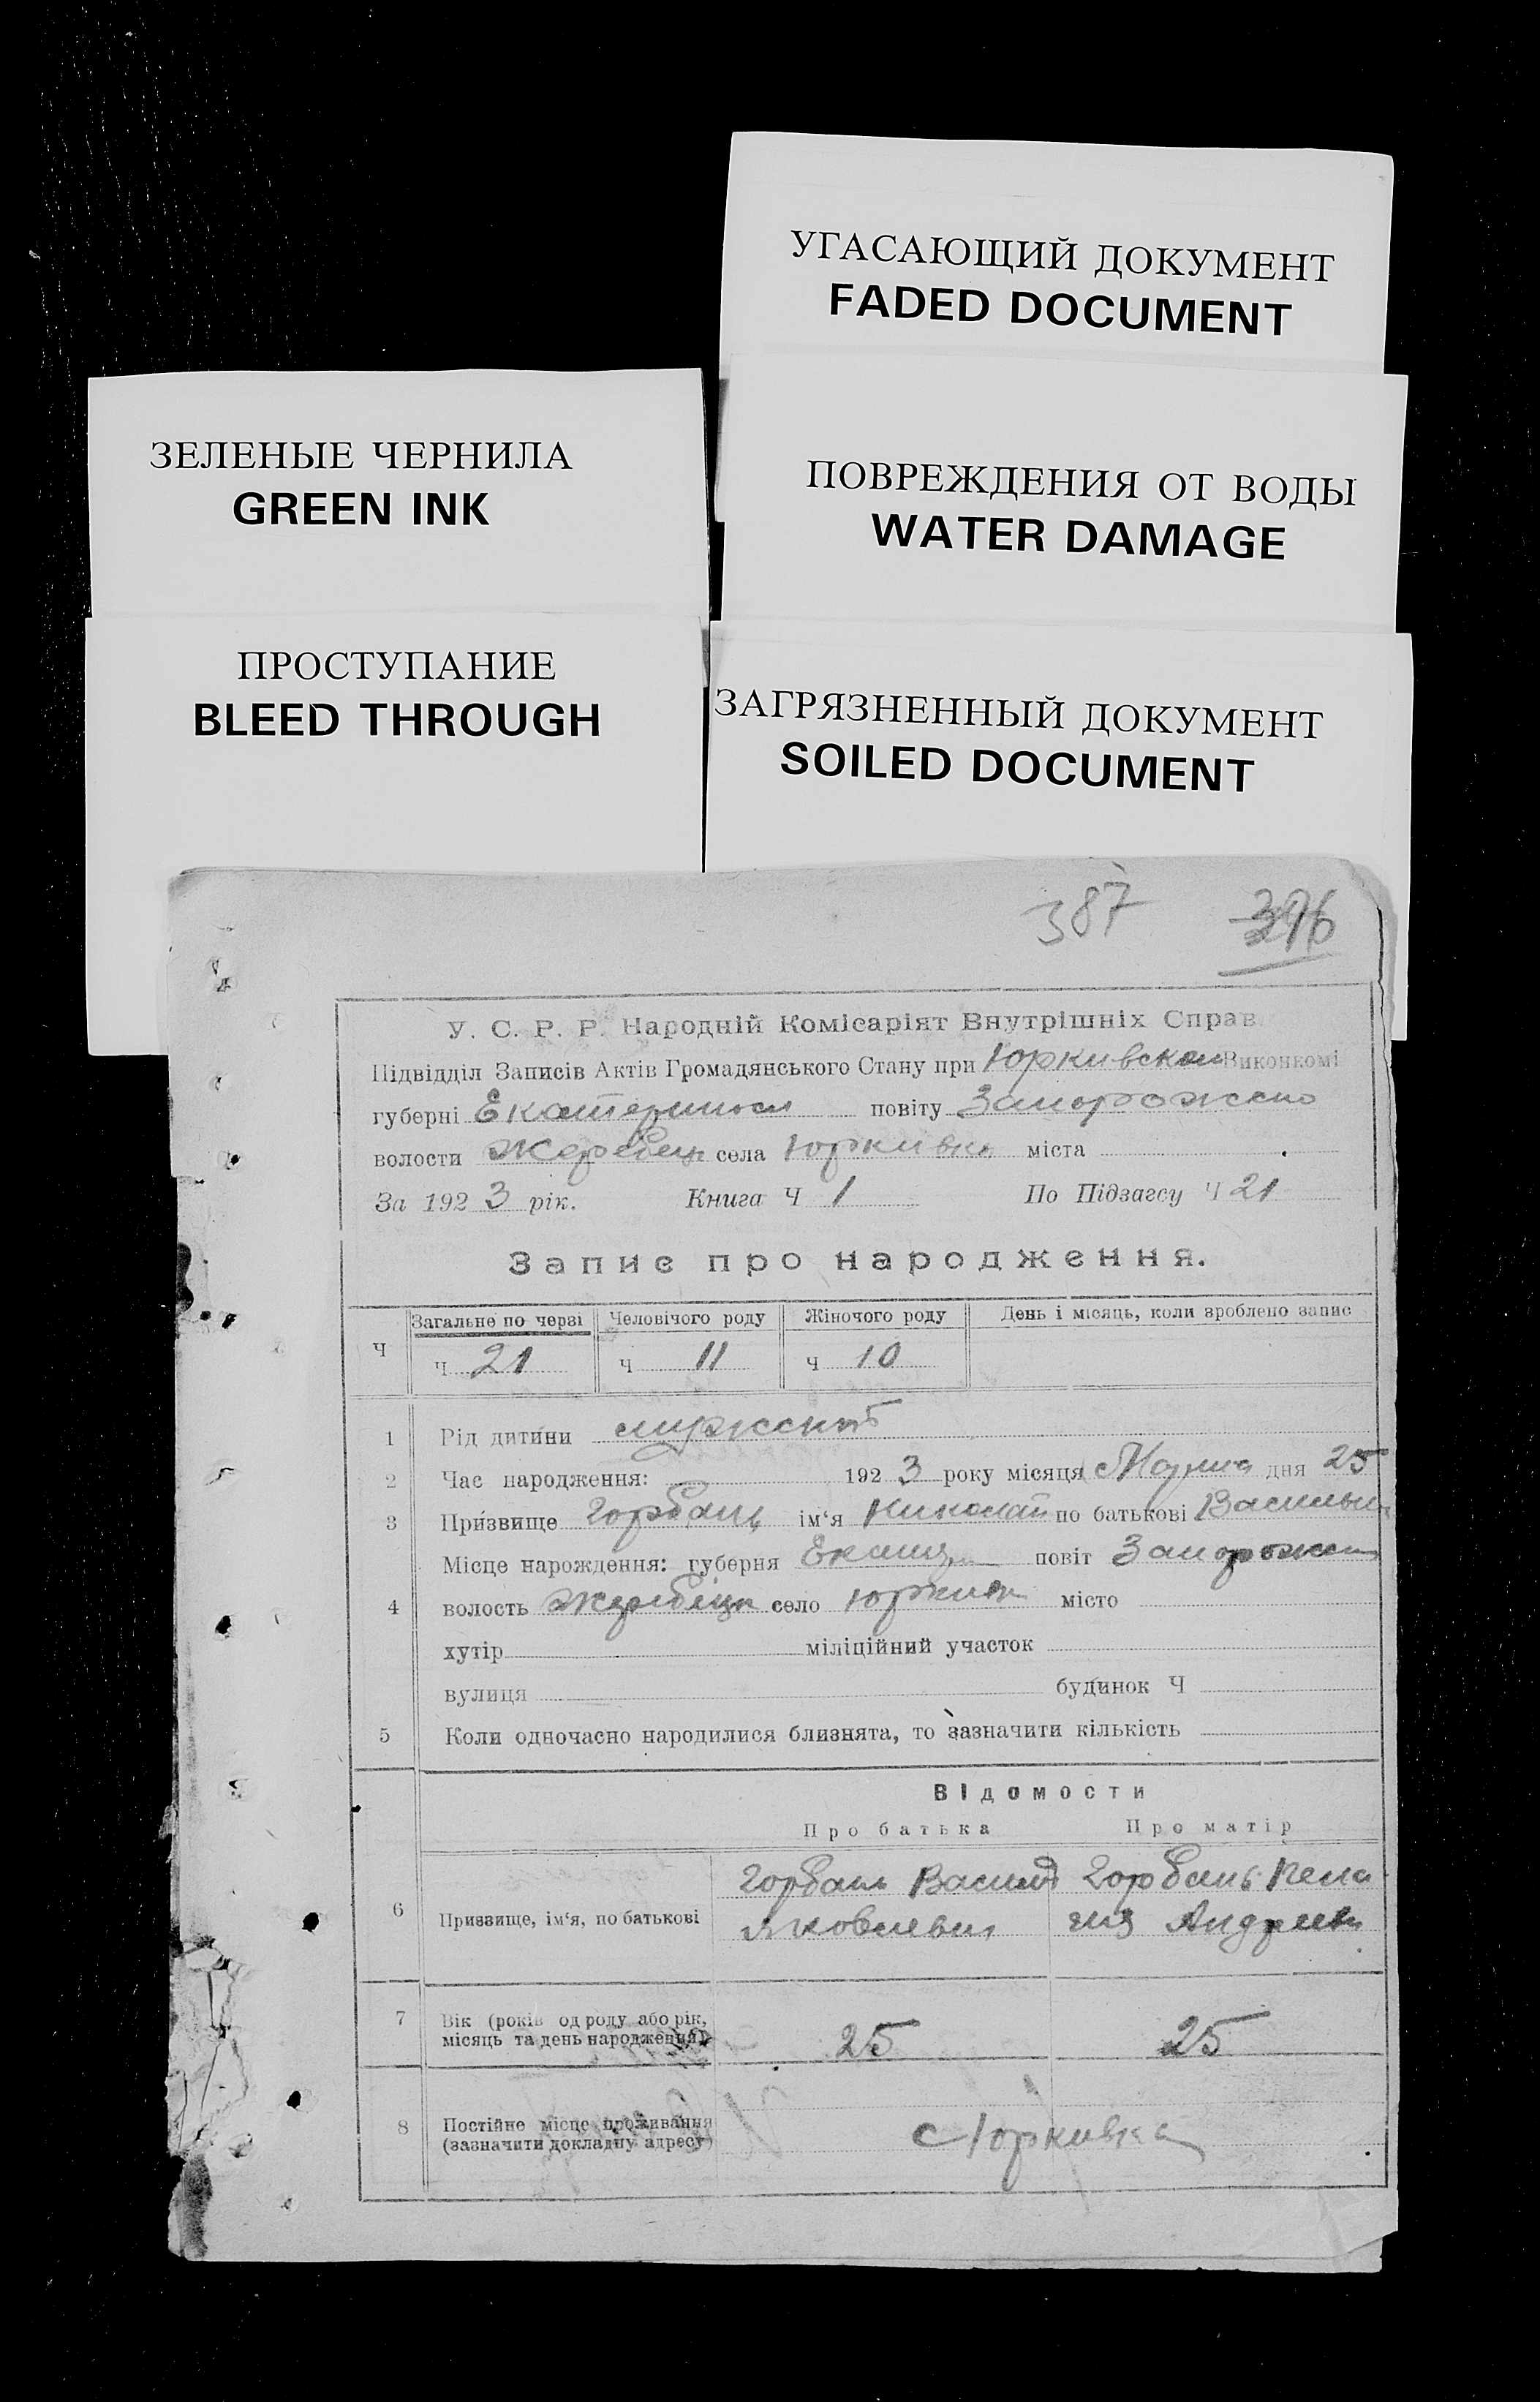 УГАСАЮЩИЙ ДОКУМЕНТ
FADED DOCUMENT
ЗЕЛЕНЫЕ ЧЕРНИЛА
GREEN INK
ПОВРЕЖДЕНИЯ ОТ ВОДЫ
WATER DAMAGE
ПРОСТУПАНИЕ
BLEED THROUGH
ЗАГРЯЗНЕННЫЙ ДОКУМЕНТ
SOILED DOCUMENT
387
У. С. Р. Р. Народній Комісаріят Внутрішніх Справ.
Підвідділ Записів Актів Громадянського Стану при Юркивском Виконкомі
губерні Екатериносл повіту Запорожско
волости Жеребец села Юркивка міста
За 1923 рік. Книга Ч 1 По Підзагсу Ч 21
Запис про народження.
Ч Загальне по черзі Человічого роду Жіночого роду День і місяць, коли зроблено запис
ч 21 ч 11 ч 10
1 Рід дитини мужской
2 Час народження: 1923 року місяця Марта дня 25
3 Призвище Горбань ім‘я Николай по батькові Васильи
Місце нарождення: губерня Екат повіт Запорожск
4 волость Жеребец село Юркивк місто
хутір міліційний участок
вулиця будинок Ч
5 Коли одночасно народилися близнята, то зазначити кількість
Відомости
Про батька Про матір
6 Призвище, ім‘я, по батькові
Горбань Васил Горбань Пела
Яковлевич гия Андреев
7 Вік (років од роду або рік,
місяць та день народження) 25 25
8 Постійне місце проживання
(зазначити докладну адресу) с Юркивка